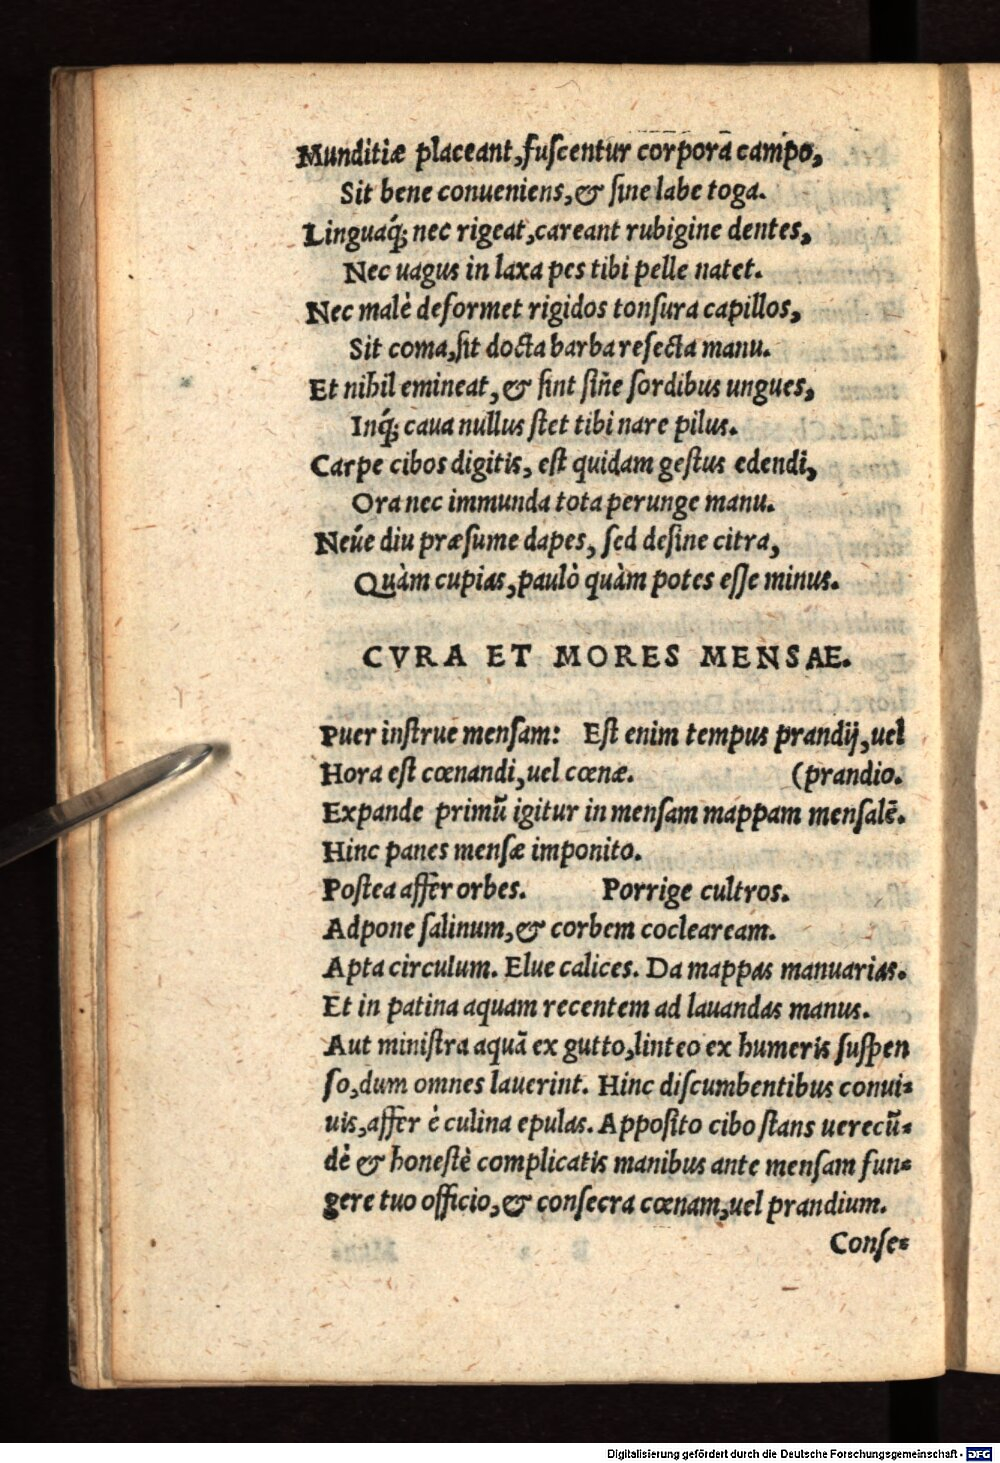 Munditiæ placeant, fuscentur corporā campo,
Sit bene conueniens, & sine labe toga.
Linguaq́; nec rigeat, careant rubigine dentes,
Nec uagus in laxa pes tibi pelle natet.
Nec malè deformet rigidos tonsura capillos,
Sit coma, sit docta barba resecta manu.
Et nihil emineat, & sint sine sordibus ungues,
Inq́; caua nullus stet tibi nare pilus.
Carpe cibos digitis, est quidam gestus edendi,
Ora nec immunda tota perunge manu.
Neúe diu præsume dapes, sed desine citra,
Quàm cupias, paulò quàm potes esse minus.
CVRA ET MORES MENSAE.
Puer instrue mensam: Est enim tempus prandij, uel
Hora est cœnandi, uel cœnæ. (prandio.
Expande primū igitur in mensam mappam mensalē.
Hinc panes mensæ imponito.
Postea affer orbes. Porrige cultros.
Adpone salinum, & corbem cocleaream.
Apta circulum. Elue calices. Da mappas manuarias.
Et in patina aquam recentem ad lauandas manus.
Aut ministra aquā ex gutto, linteo ex humeris suspen
so, dum omnes lauerint. Hinc discumbentibus conui-
uis, affer è culina epulas. Apposito cibo stans uerecū-
dè & honestè complicatis manibus ante mensam fun-
gere tuo officio, & consecra cœnam, uel prandium.
Conse-
Digitalisierung gefördert durch die Deutsche Forschungsgemeinschaft - DFG